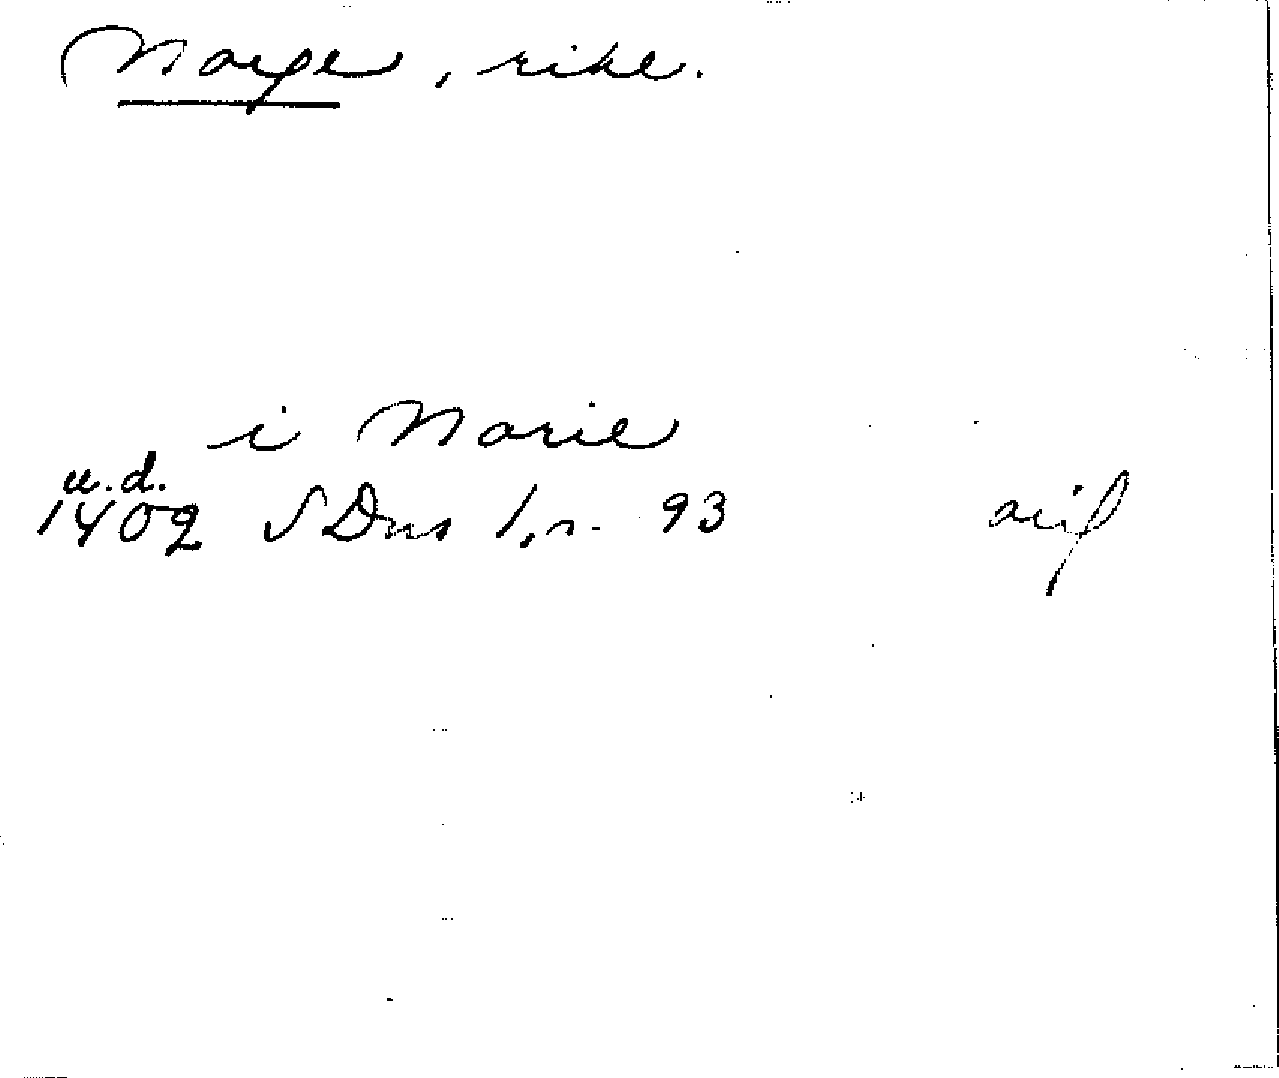 Norge, rike.
i Norie
u.d.
1402 SDns 1, s. 93